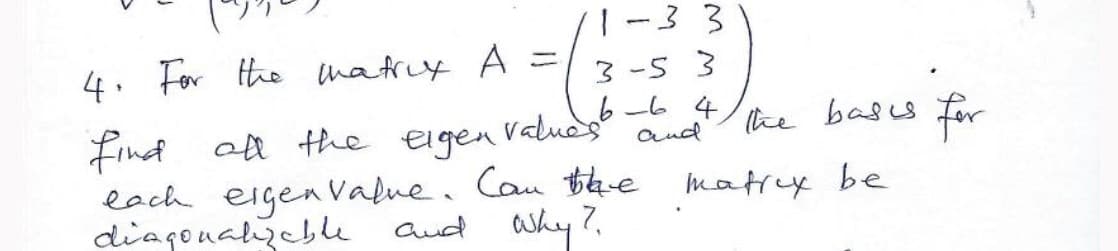 1 -3 3
4. For the matrix A = ( 3 -5 3 )
6 -6 4
find all the eigen values and the basis for
each eigenvalue. Can the matrix be
diagonalizable and why?